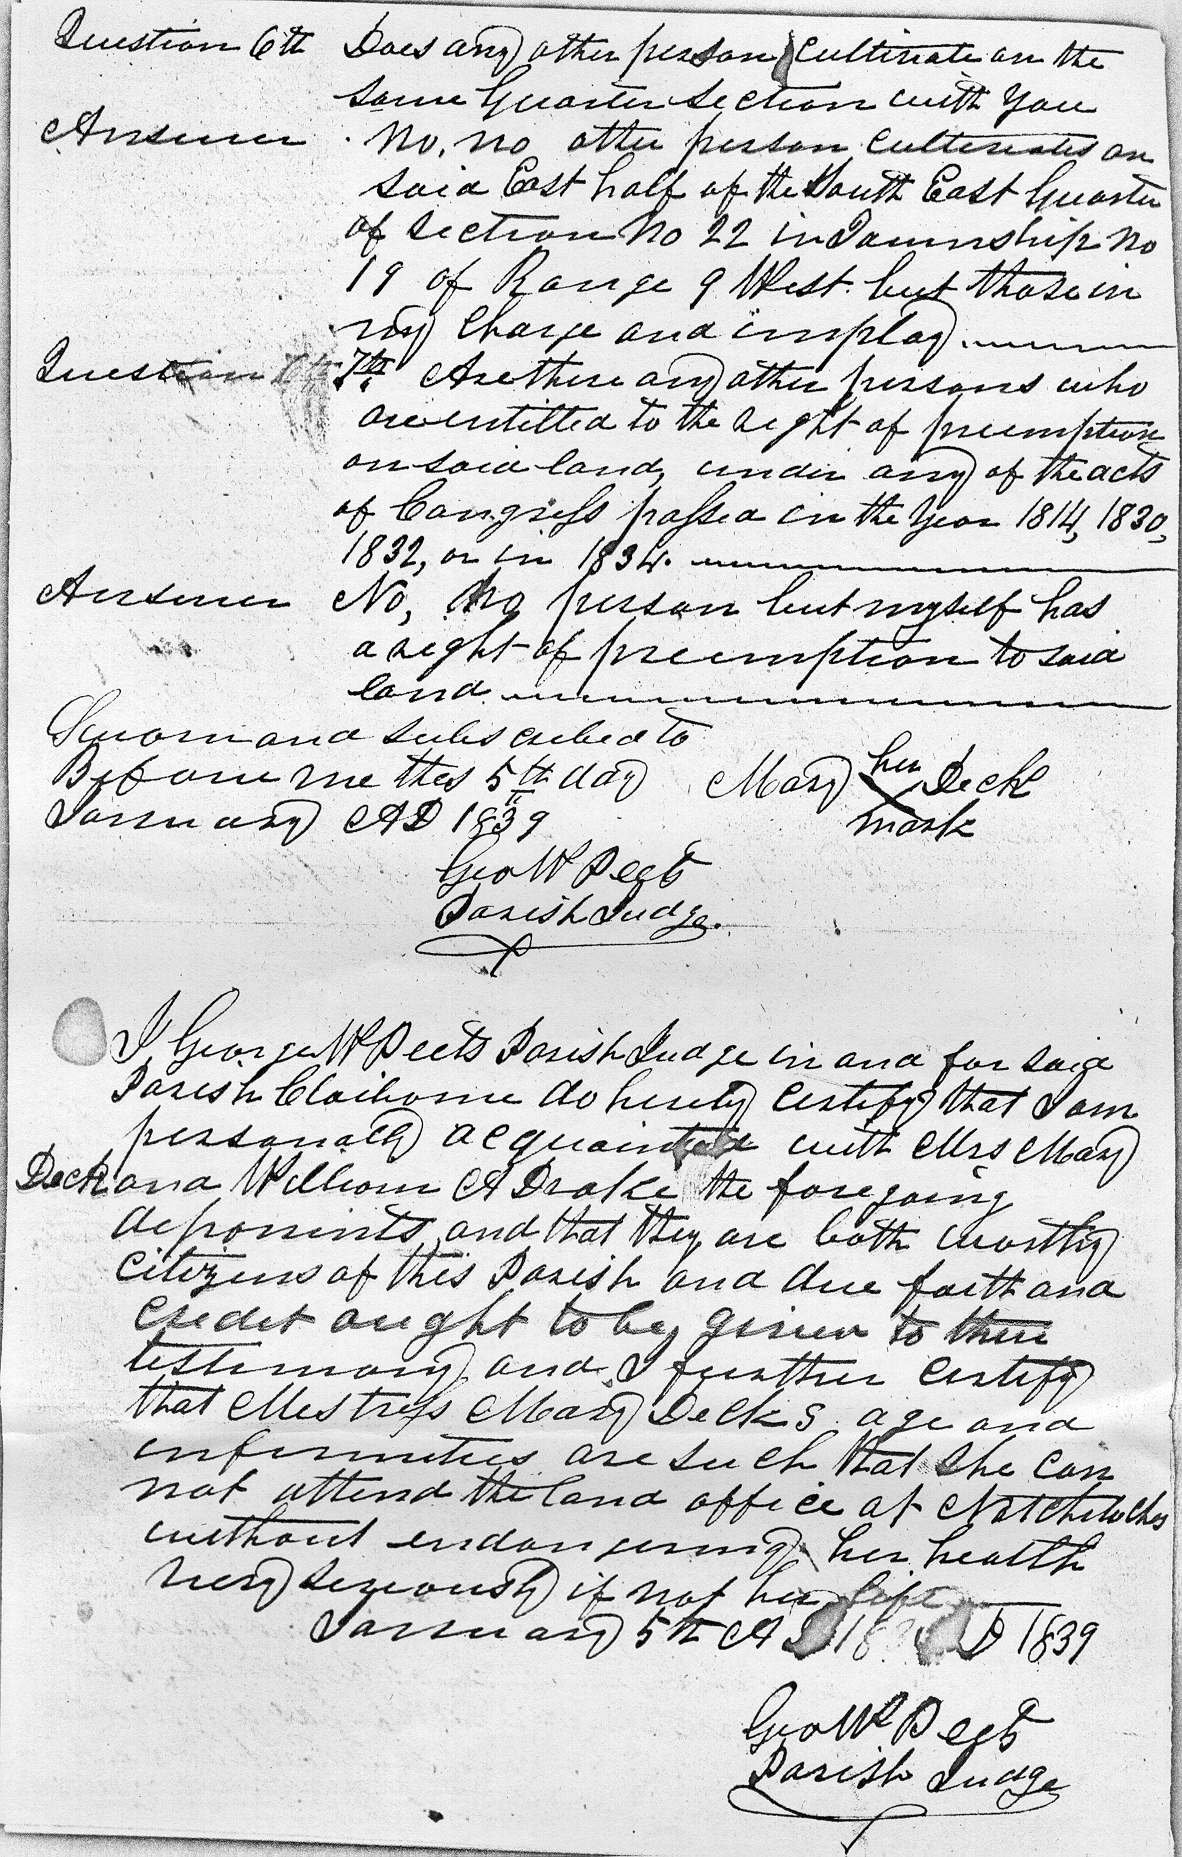 Question 6th Does any other person cultivate on the
same Quarter Section with you
Answer . No, no other person cultivates on
said East half of the South East Quarter
of Section No 22 in Township No
19 of Range 9 West but those in
my charge and imploy
Question 7th Are there any other persons who
are entitled to the right of preemption
on said land, under any of the acts
of Congress passed in the year 1814, 1830,
1832, or in 1834.
Answer No, No person but myself has
a right of preemption to said
land
Sworn and subscribed to
Before me this 5th day Mary her Deck
January AD 1839 mark
Geo W Peets
Parish Judge.
I George W Peets Parish Judge in and for said
Parish Claiborne do hereby certify that I am
personally acquainted with Mrs Mary
Deck and William A Drake the foregoing
deponents and that they are both worthy
citizens of this Parish and due faith and
credit ought to be given to their
testimony and I further certify
that Mestress Mary Decks age and
infirmities are such that she can
not attend the land office at Natchitoches
without endangering her health
very seriously if not her life
January 5th AD 18 D 1839
Geo W Peets
Parish Judge